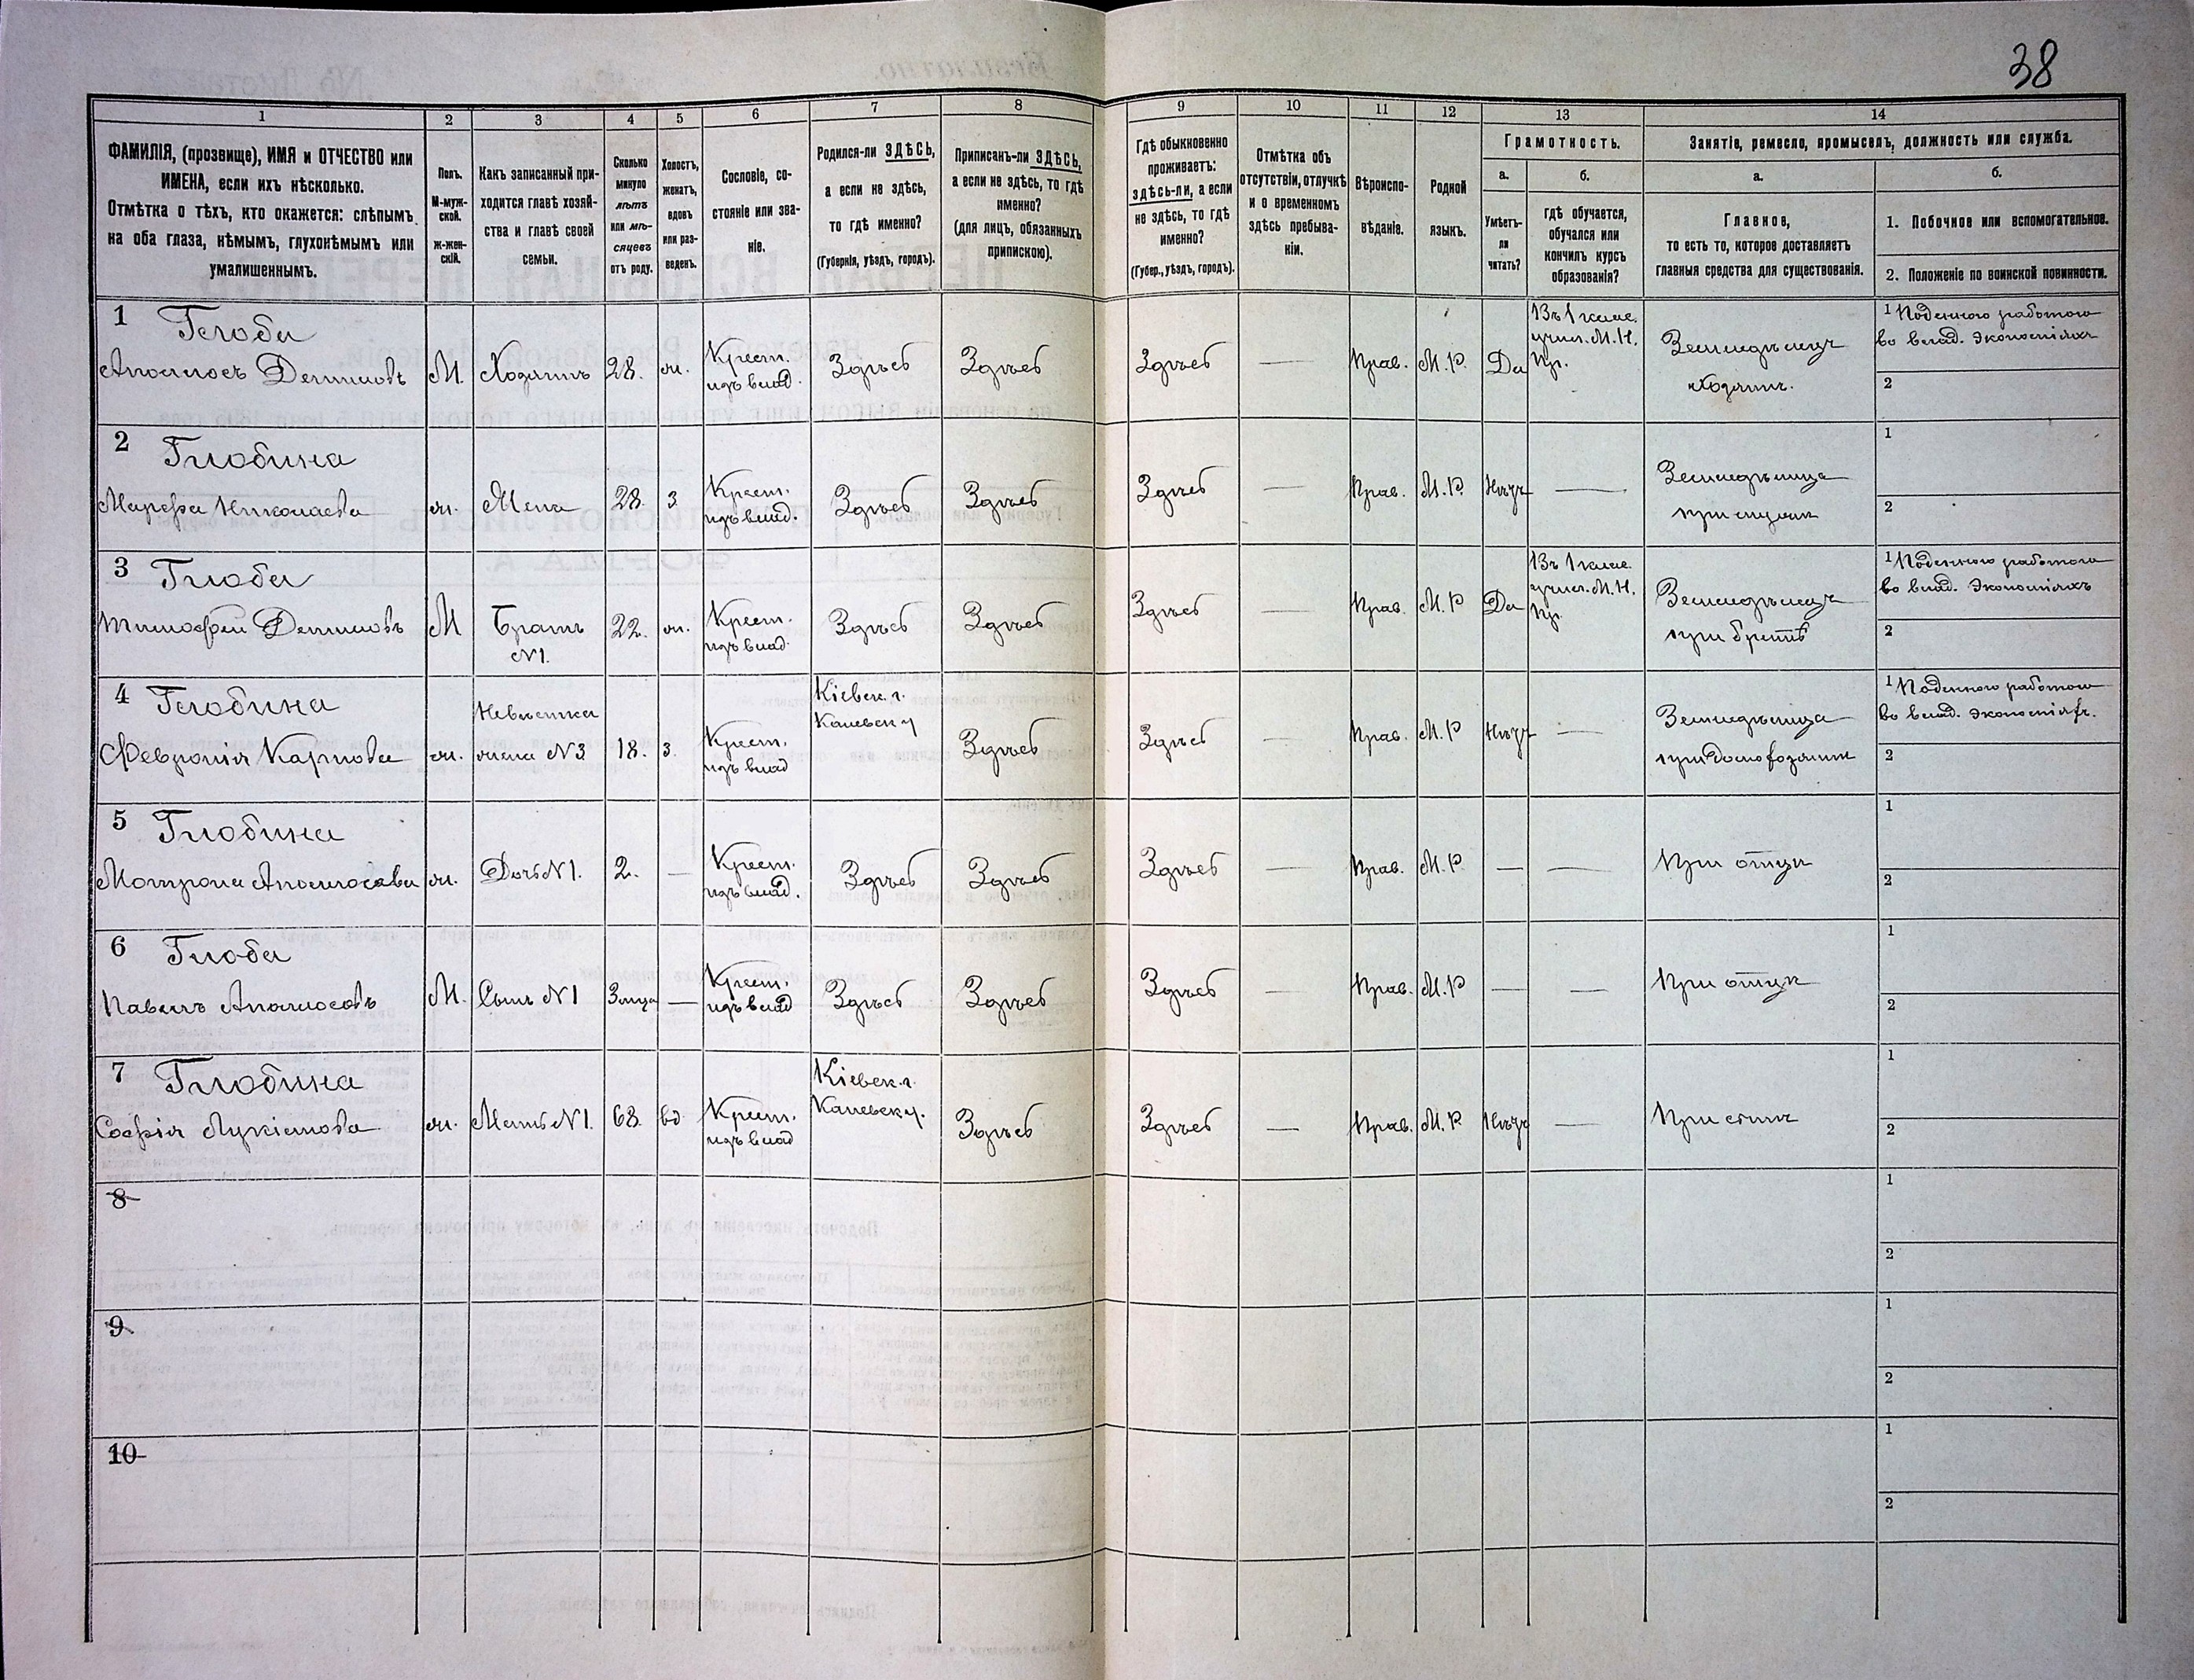 38
1
2
3
4
5
6
7
8
9
10
11
12
13
14
ФАМИЛІЯ, (прозвище), ИМЯ и ОТЧЕСТВО или
ИМЕНА, если ихъ нѣсколько.
Отмѣтка о тѣхъ, кто окажется: слѣпымъ
на оба глаза, нѣмымъ, глухонѣмымъ или
умалишеннымъ.
Полъ.
М-муж-
ской.
ж-жен-
скій.
Какъ записанный при-
ходится главѣ хозяй-
ства и главѣ своей
семьи.
Сколько
минуло
лѣтъ
или мѣ-
сяцевъ
отъ роду.
Холостъ,
женатъ,
вдовъ
или раз-
веденъ.
Сословіе, со-
стояніе или зва-
ніе.
Родился-ли ЗДѢСЬ,
а если не здѣсь,
то гдѣ именно?
(Губернія, уѣздъ, городъ).
Приписанъ-ли ЗДѢСЬ,
а если не здѣсь, то гдѣ
именно?
(для лицъ, обязанныхъ
припискою).
Гдѣ обыкновенно
проживаетъ:
здѣсь-ли, а если
не здѣсь, то гдѣ
именно?
(Губер., уѣздъ, городъ).
Отмѣтка объ
отсутствіи, отлучкѣ
и о временномъ
здѣсь пребыва-
ніи.
Вѣроиспо-
вѣданіе.
Родной
языкъ.
Грамотность.
а.
Умѣетъ-
ли
читать?
б.
гдѣ обучается,
обучался или
кончилъ курсъ
образованія?
Занятіе, ремесло, промыселъ, должность или служба.
а.
Главное,
то есть то, которое доставляетъ
главныя средства для существованія.
б.
1. Побочное или вспомогательное.
2. Положеніе по воинской повинности.
1 Глоба
Аполлосъ Денисовъ
М.
Хозяинъ
28.
ж.
Крест.
изъ влад.
Здѣсь
Здѣсь
Здѣсь
—
Прав.
М.Р.
Да
Въ 1 клас.
учил. М.Н.
Пр.
Земледѣлецъ
хозяинъ.
1 Поденною работою
во влад. экономіяхъ
2
2 Глобина
Марфа Николаева
ж.
Жена
28.
з
Крест.
изъ влад.
Здѣсь
Здѣсь
Здѣсь
—
Прав.
М.Р.
Нѣтъ
—
Земледѣлица
при мужѣ
1
2
3 Глоба
Тимофей Денисовъ
М
Братъ
N1.
22.
ж.
Крест.
изъ влад.
Здѣсь
Здѣсь
Здѣсь
—
Прав.
М.Р
Да
Въ 1 клас.
учил. М.Н.
Пр.
Земледѣлецъ
при братѣ
1 Поденною работою
во влад. экономіяхъ
2
4 Глобина
Февронія Карпова
ж.
Невѣстка
жена N3
18.
з.
Крест.
изъ влад
Кіевск. г.
Каневск у
Здѣсь
Здѣсь
—
Прав.
М.Р
Нѣтъ
—
Земледѣлица
при домохозяинѣ
1 Поденною работою
во влад. экономіях.
2
5 Глобина
Мотрона Аполлосова
ж.
Дочь N1.
2.
—
Крест.
изъ влад.
Здѣсь
Здѣсь
Здѣсь
—
Прав.
М.Р.
—
—
При отцѣ
1
2
6 Глоба
Павелъ Аполлосовъ
М.
Сынъ N1
3 мѣс
—
Крест.
изъ влад
Здѣсь
Здѣсь
Здѣсь
—
Прав.
М.Р
—
—
При отцѣ
1
2
7 Глобина
Софія Лукіанова
ж.
Мать N1.
68.
вд
Крест.
изъ влад
Кіевск. г.
Каневск у.
Здѣсь
Здѣсь
—
Прав.
М.Р
Нѣтъ
—
При сынѣ
1
2
8
1
2
9
1
2
10
1
2